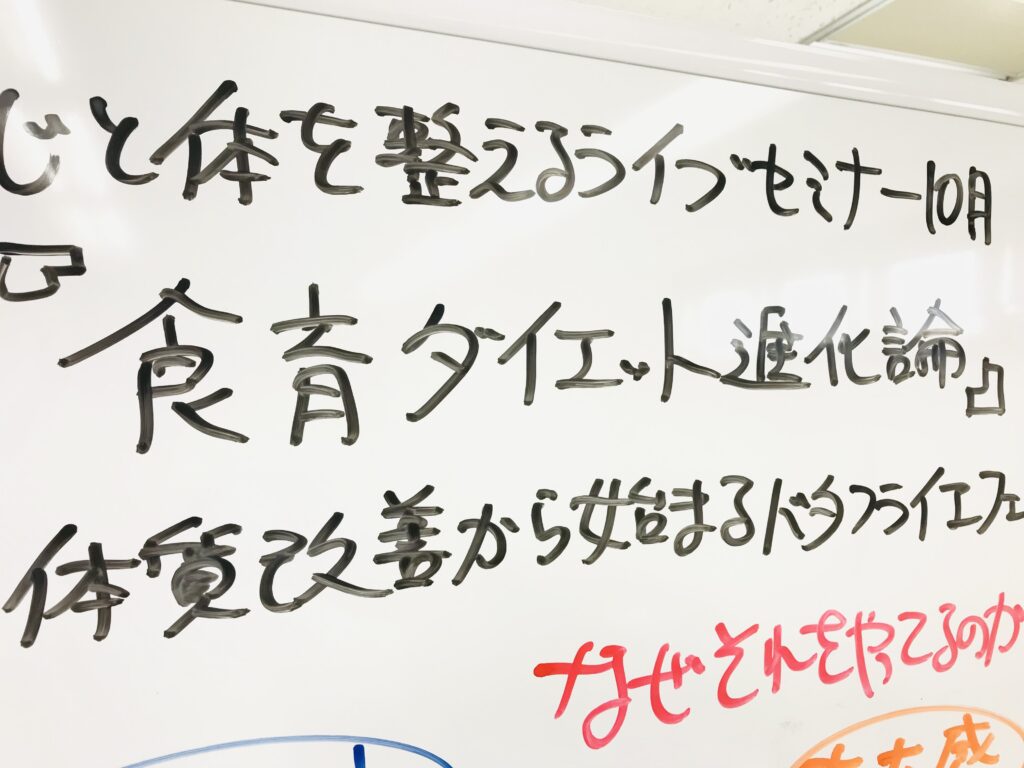 心と体を整えるライブセミナー10月
『
食育ダイエット進化論』
体質改善から始まるバタフライエフェ
なぜそれをやってるのか
感